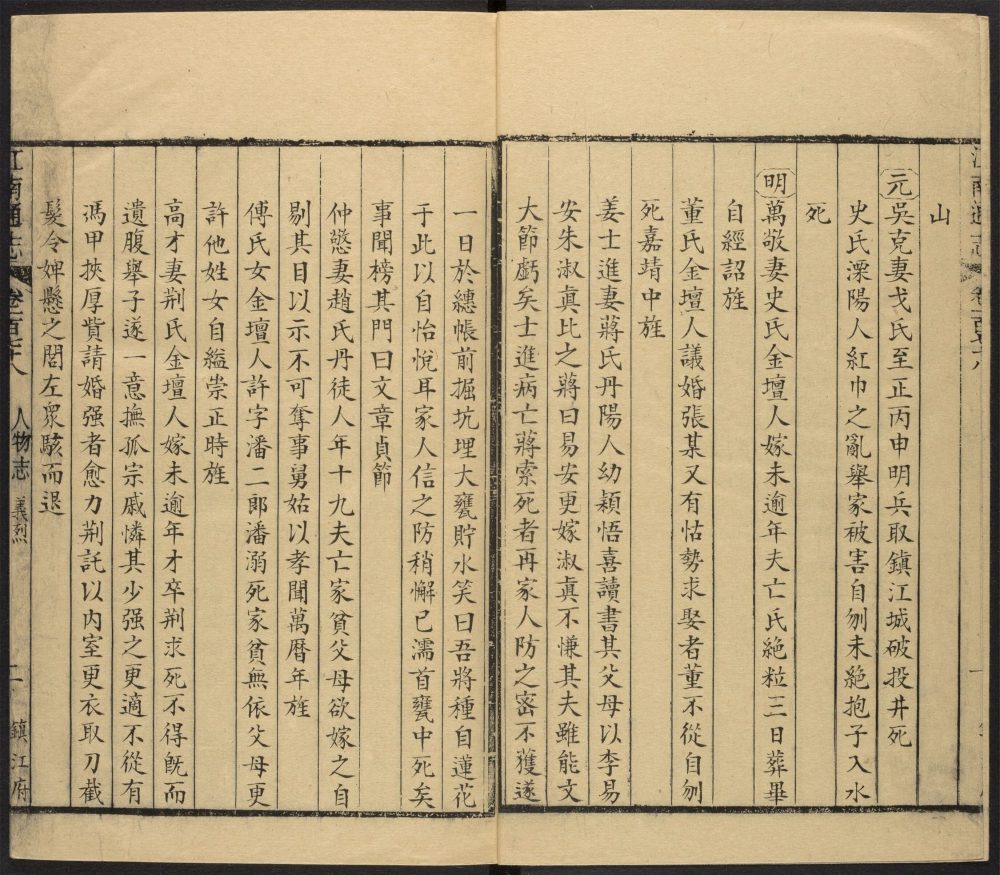 山
元吳克妻戈氏至正丙申明兵取鎮江城破投井死
史氏溧陽人紅巾之亂舉家被害自刎未絕抱子入水
死
明萬敬妻史氏金壇人嫁未逾年夫亡氏絕粒三日葬畢
自經詔旌
董氏金壇人議婚張某又有怙勢求娶者董不從自刎
死嘉靖中旌
姜士進妻蔣氏丹陽人幼穎悟喜讀書其父母以李易
安朱淑眞比之蔣曰易安更嫁淑眞不慊其夫雖能文
大節虧矣士進病亡蔣索死者再家人防之密不獲遂
一日於繐帳前掘坑埋大甕貯水笑曰吾將種自蓮花
于此以自怡悅耳家人信之防稍懈已濡首甕中死矣
事聞榜其門曰文章貞節
仲愸妻趙氏丹徒人年十九夫亡家貧父母欲嫁之自
剔其目以示不可奪事舅姑以孝聞萬曆年旌
傅氏女金壇人許字潘二郎潘溺死家貧無依父母更
許他姓女自縊崇正時旌
高才妻荆氏金壇人嫁未逾年才卒荆求死不得旣而
遺腹舉子遂一意撫孤宗戚憐其少强之更適不從有
馮甲挾厚貲請婚强者愈力荆託以内室更衣取刀截
髮令婢懸之閤左衆駭而退
江南通志 卷一百七十八 人物志 義烈 二 鎮江府